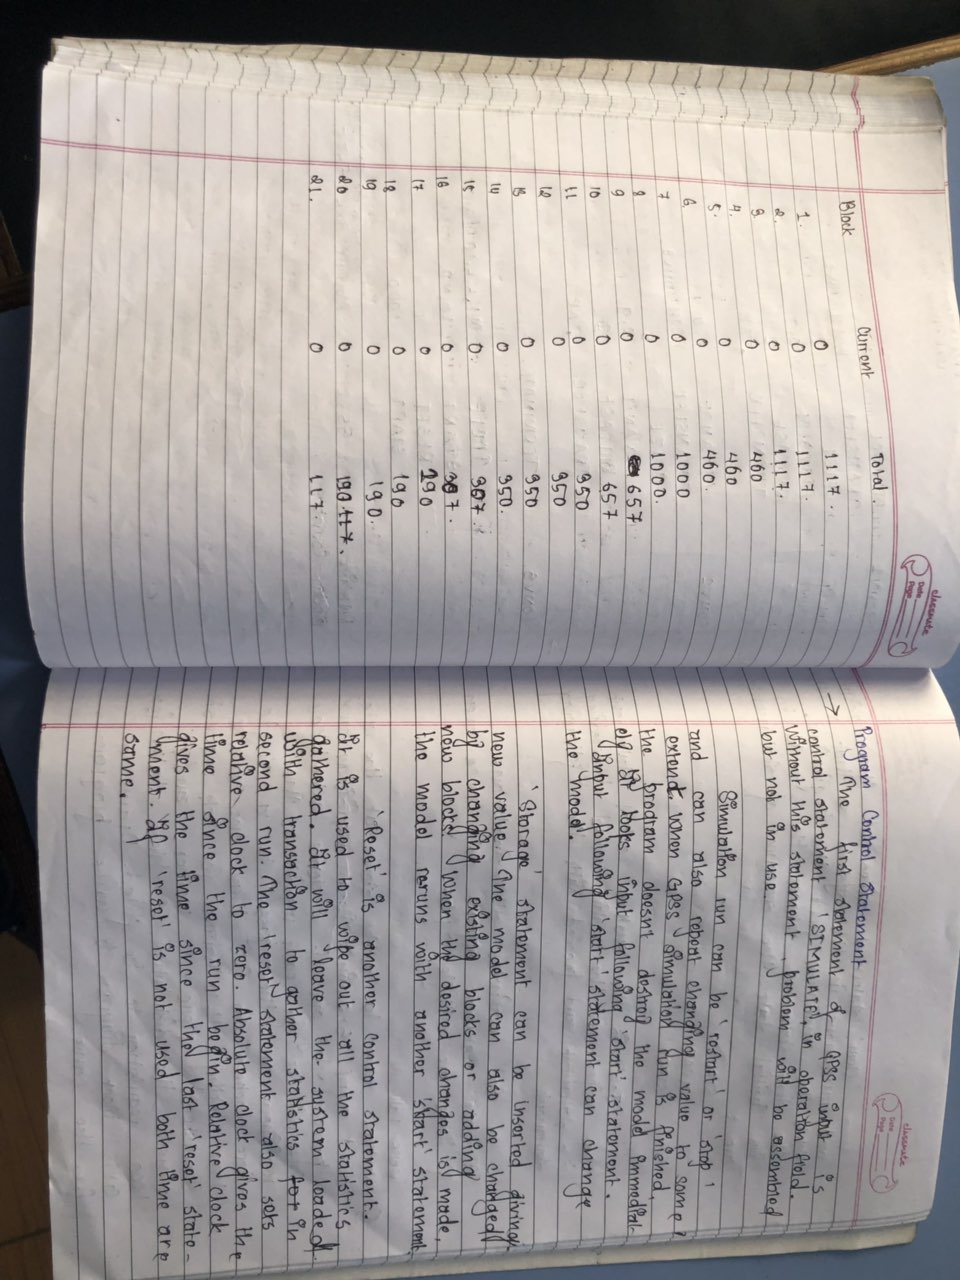 classmate
Date
Page
Block Current Total
1. 0 1117.
2. 0 1117.
3. 0 1117.
4. 0 460
5. 0 460
6 0 460.
7 0 1000
8 0 1000.
9 0 657.
10 0 657
11 0 350
12 0 350
13 0 350
14 0 350.
15 0. 307.
16 0 307.
17 0 190
18 0 190
19 0 190.
20 0 190 117.
21. 0 117.
classmate
Date
Page
Program Control Statement
→ The first statement of GPSS input is
control statement 'SIMULATE', in operation field.
Without this statement, problem will be assembled
but not in use.
Simulation run can be 'restart' or 'stop'
and can also repeat changing value to some
extend. When GPSS simulation run is finished,
the program doesnt destroy the model immediat-
ely. It looks input following 'start' statement.
Input following 'start' statement can change
the model.
'Storage' statement can be inserted diving
new value. The model can also be changed
by changing existing blocks or adding
new blocks. When the desired changes is made,
the model reruns with another 'start' statement
'Reset' is another control statement.
It is used to wipe out all the statistics
gathered. It will leave the system loaded
with transation to gather statistics for in
second run. The 'reset' statement also sets
relative clock to zero. Absolute clock gives the
time since the run begin. Relative clock
gives the time since the last 'reset' state-
ment. If 'reset' is not used both time are
same.